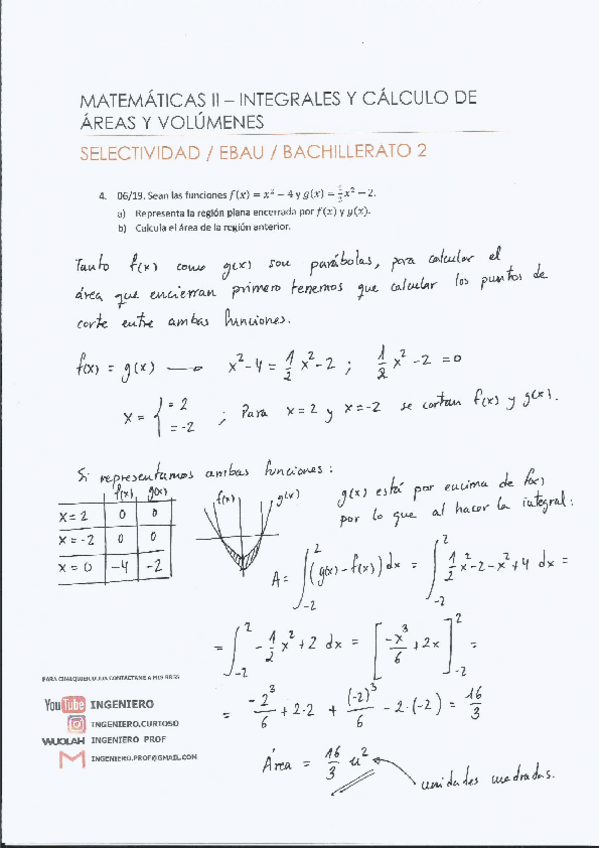 MATEMÁTICAS II – INTEGRALES Y CÁLCULO DE
ÁREAS Y VOLÚMENES
SELECTIVIDAD / EBAU / BACHILLERATO 2
4. 06/19. Sean las funciones f(x) = x² − 4 y g(x) = 1/2 x² − 2.
a) Representa la región plana encerrada por f(x) y g(x).
b) Calcula el área de la región anterior.
Tanto f(x) como g(x) son parábolas, para calcular el
área que encierran primero tenemos que calcular los puntos de
corte entre ambas funciones.
f(x) = g(x) → x² - 4 = 1/2 x² - 2 ; 1/2 x² - 2 = 0
x = { = 2
= -2 ; Para x = 2 y x = -2 se cortan f(x) y g(x).
Si representamos ambas funciones:
f(x) g(x)
x = 2 0 0
x = -2 0 0
x = 0 -4 -2
f(x) g(x)
g(x) está por encima de f(x)
por lo que al hacer la integral:
A = ∫_{-2}^{2} (g(x) - f(x)) dx = ∫_{-2}^{2} 1/2 x² - 2 - x² + 4 dx =
= ∫_{-2}^{2} - 1/2 x² + 2 dx = [ -x³/6 + 2x ]_{-2}^{2} =
= -2³/6 + 2·2 + (-2)³/6 - 2·(-2) = 16/3
Área = 16/3 u²
unidades cuadradas.
YouTube INGENIERO
INGENIERO.CURIOSO
WUOLAH INGENIERO PROF
INGENIERO.PROF@GMAIL.COM